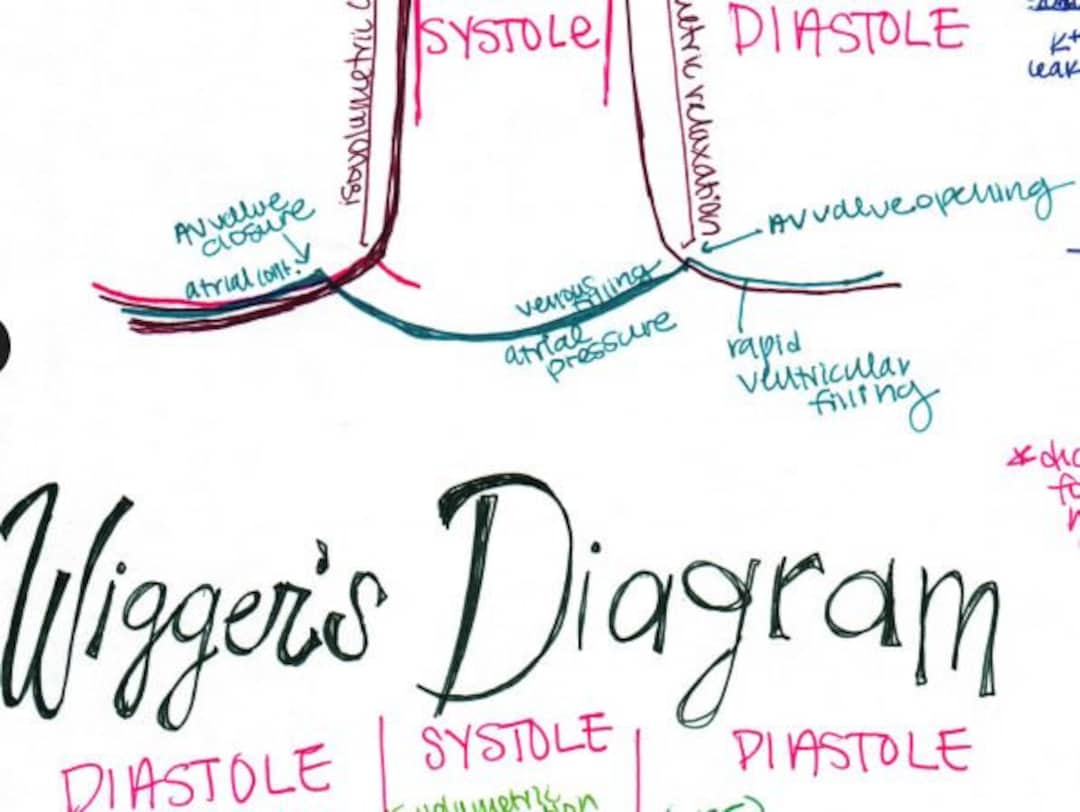 isovolumetric
SYSTOLE
relaxation
DIASTOLE
K+
leak
AV valve
closure
atrial cont.
AV valve opening
venous
filling
atrial
pressure
rapid
ventricular
filling
Wigger's Diagram
DIASTOLE
SYSTOLE
DIASTOLE